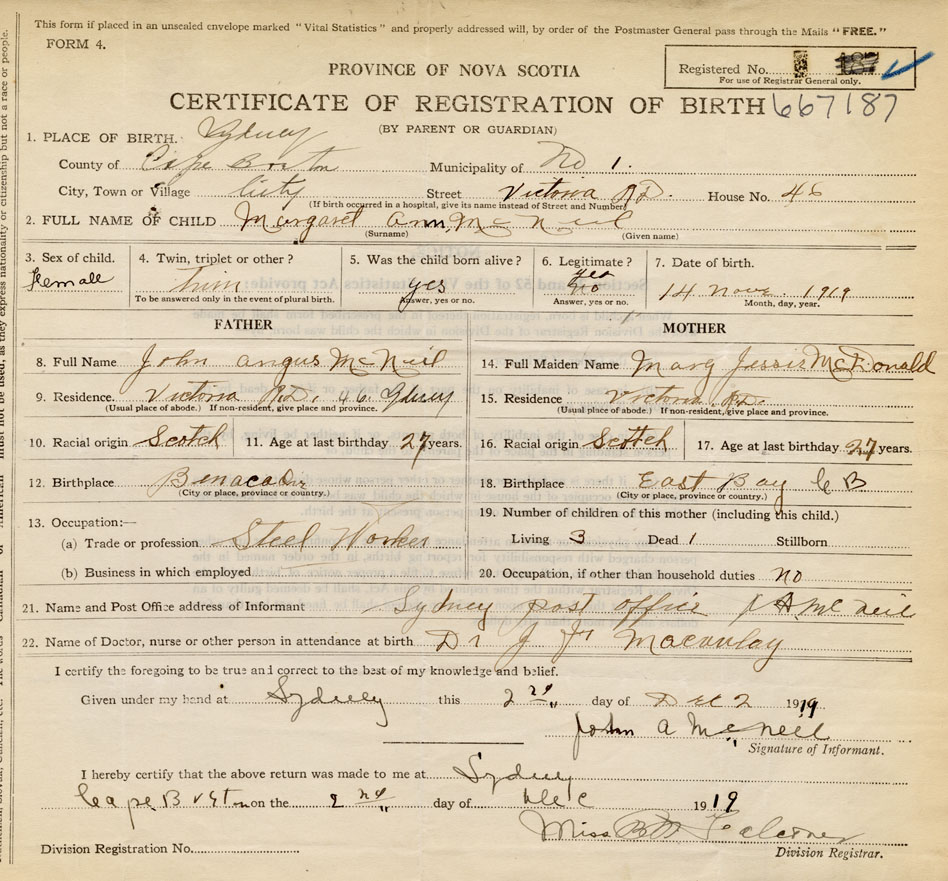 This form if placed in an unsealed envelope marked "Vital Statistics" and properly addressed will, by order of the Postmaster General pass through the Mails "FREE."
FORM 4.
Registered No. 187
For use of Registrar General only.
PROVINCE OF NOVA SCOTIA
CERTIFICATE OF REGISTRATION OF BIRTH 667187
(BY PARENT OR GUARDIAN)
1. PLACE OF BIRTH. Sydney
County of Cape Breton Municipality of No 1.
City, Town or Village City Street Victoria RD. House No. 46
(If birth occurred in a hospital, give its name instead of Street and Number)
2. FULL NAME OF CHILD Margaret ann McNeil
(Surname) (Given name)
3. Sex of child. 4. Twin, triplet or other? 5. Was the child born alive? 6. Legitimate? 7. Date of birth.
Female yes yes 14 Nov. 1919
To be answered only in the event of plural birth. Answer, yes or no. Answer, yes or no. Month, day, year.
FATHER MOTHER
8. Full Name John angus McNeil 14. Full Maiden Name Mary Jessie McDonald
9. Residence. Victoria RD. 46 Sydney 15. Residence Victoria RD.
(Usual place of abode.) If non-resident, give place and province. (Usual place of abode.) If non-resident, give place and province.
10. Racial origin Scotch 11. Age at last birthday 27 years. 16. Racial origin Scotch 17. Age at last birthday 27 years.
12. Birthplace Benacadie 18. Birthplace East Bay C B
(City or place, province or country.) (City or place, province or country.)
13. Occupation:— 19. Number of children of this mother (including this child.)
(a) Trade or profession Steel Worker Living 3 Dead 1 Stillborn
(b) Business in which employed 20. Occupation, if other than household duties no
21. Name and Post Office address of Informant Sydney post office J A McNeil
22. Name of Doctor, nurse or other person in attendance at birth Dr J Macaulay
I certify the foregoing to be true and correct to the best of my knowledge and belief.
Given under my hand at Sydney this 2nd day of Dec 2 1919
John A McNeil
Signature of Informant.
I hereby certify that the above return was made to me at Sydney
Cape Breton on the 2nd day of Dec 1919
Miss
Division Registrar.
Division Registration No.